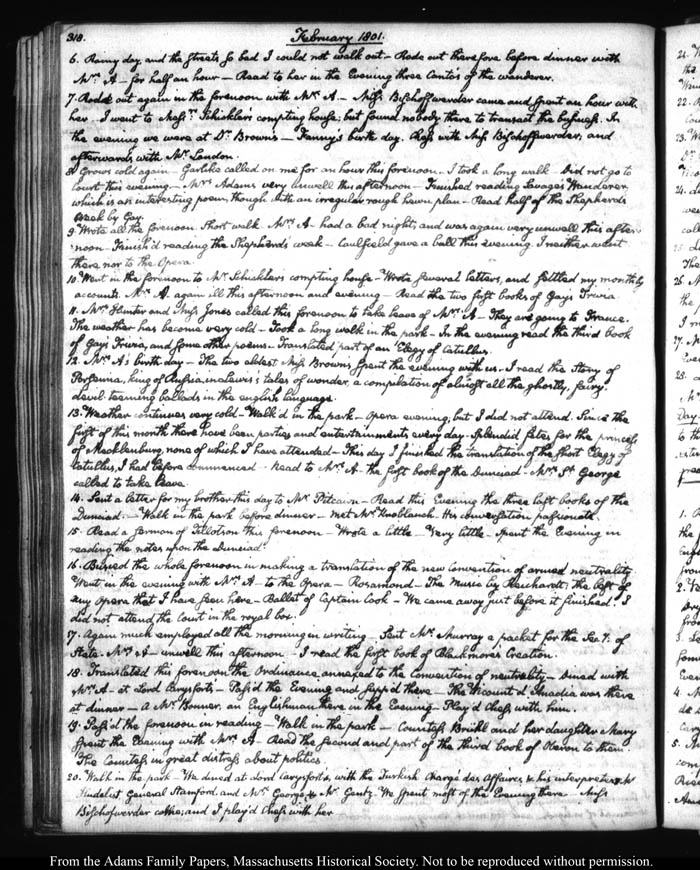 318.
February 1801.
6. Rainy day, and the streets so bad I could not walk out - Rode out therefore before dinner with
Mrs. A - for half an hour - Read to her in the Evening three Cantos of the wanderer.
7. Rode out again in the forenoon with Mrs. A - Miss Bischoffwerder came and spent an hour with
her - I went to Messrs. Schickler's compting house, but found nobody there to transact the business. In
the evening we were at Dr. Brown's - Fanny's birth day. Chess with Miss Bischoffwerder, and
afterwards with Mr. Landon.
8. Grows cold again - Garlike called on me for an hour this forenoon - I took a long walk - Did not go to
Court this evening - Mrs. Adams very unwell this afternoon - Finished reading Savage's Wanderer,
which is an interesting poem, though with an irregular rough hewn plan - Read half of the Shepherd's
Week by Gay.
9. Wrote all the forenoon. Short walk. Mrs. A - had a bad night, and was again very unwell this after-
noon - Finish'd reading the Shepherd's week - Caulfield gave a ball this evening. I neither went
there nor to the Opera.
10. Went in the forenoon to Mr. Schickler's compting house - Wrote several letters, and settled my monthly
accounts. Mrs. A. again ill this afternoon and evening - Read the two first books of Gay's Trivia.
11. Mrs. Hunter and Miss Jones called this forenoon to take leave of Mrs. A - They are going to France.
The weather has become very cold - Took a long walk in the park - In the evening read the third book
of Gay's Trivia, and some other poems - Translated part of an Elegy of Catullus.
12. Mrs. A's birth day - The two eldest Miss Browns spent the evening with us - I read the Story of
Porsenna, king of Russia, in Lewis's tales of wonder, a compilation of almost all the ghostly, fairy,
devil-teeming ballads in the english language.
13. Weather continues very cold - Walk'd in the park - Opera evening, but I did not attend. Since the
first of this month there have been parties and entertainments every day - Splendid fêtes for the princess
of Mecklenburg, none of which I have attended - This day I finished the translation of the short Elegy of
Catullus, I had before commenced - Read to Mrs. A - the first book of the Dunciad - Mrs. St. George
called to take leave.
14. Sent a letter for my brother this day to Mr. Pitcairn - Read this Evening the three last books of the
Dunciad - Walk in the park before dinner - met Mr. Knoblauch. His conversation passionate.
15. Read a sermon of Tillotson this forenoon - Wrote a little - Very little - Spent the Evening in
reading the notes upon the Dunciad.
16. Busied the whole forenoon in making a translation of the new Convention of armed neutrality.
Went in the evening with Mrs. A - to the Opera - Rosamond - The Music by Reichardt; the best of
any Opera that I have seen here - Ballet of Captain Cook - We came away just before it finished. I
did not attend the Court in the royal box.
17. Again much employed all the morning in writing - Sent Mr. Murray a packet for the Secy. of
State. Mrs. A - unwell this afternoon - I read the first book of Blackmore's Creation.
18. Translated this forenoon the Ordinance annexed to the Convention of neutrality - Dined with
Mrs. A - at Lord Carysfort's - Pass'd the Evening and supp'd there - The Viscount d'Anadia was there
at dinner - a Mr. Bonner, an Englishman there in the Evening - Play'd Chess with him.
19. Pass'd the forenoon in reading - Walk in the park - Countess Brühl and her daughter Mary
spent the Evening with Mrs. A - Read the second and part of the third book of Oberon to them.
The Countess in great distress about politics.
20. Walk in the park - We dined at Lord Carysfort's, with the Turkish Chargé des Affaires & his interpreter,
Hudelist General Stamford, and Mrs. George & Mr. Gentz. We spent most of the Evening there - Miss
Bischofwerder came, and I play'd Chess with her
From the Adams Family Papers, Massachusetts Historical Society. Not to be reproduced without permission.